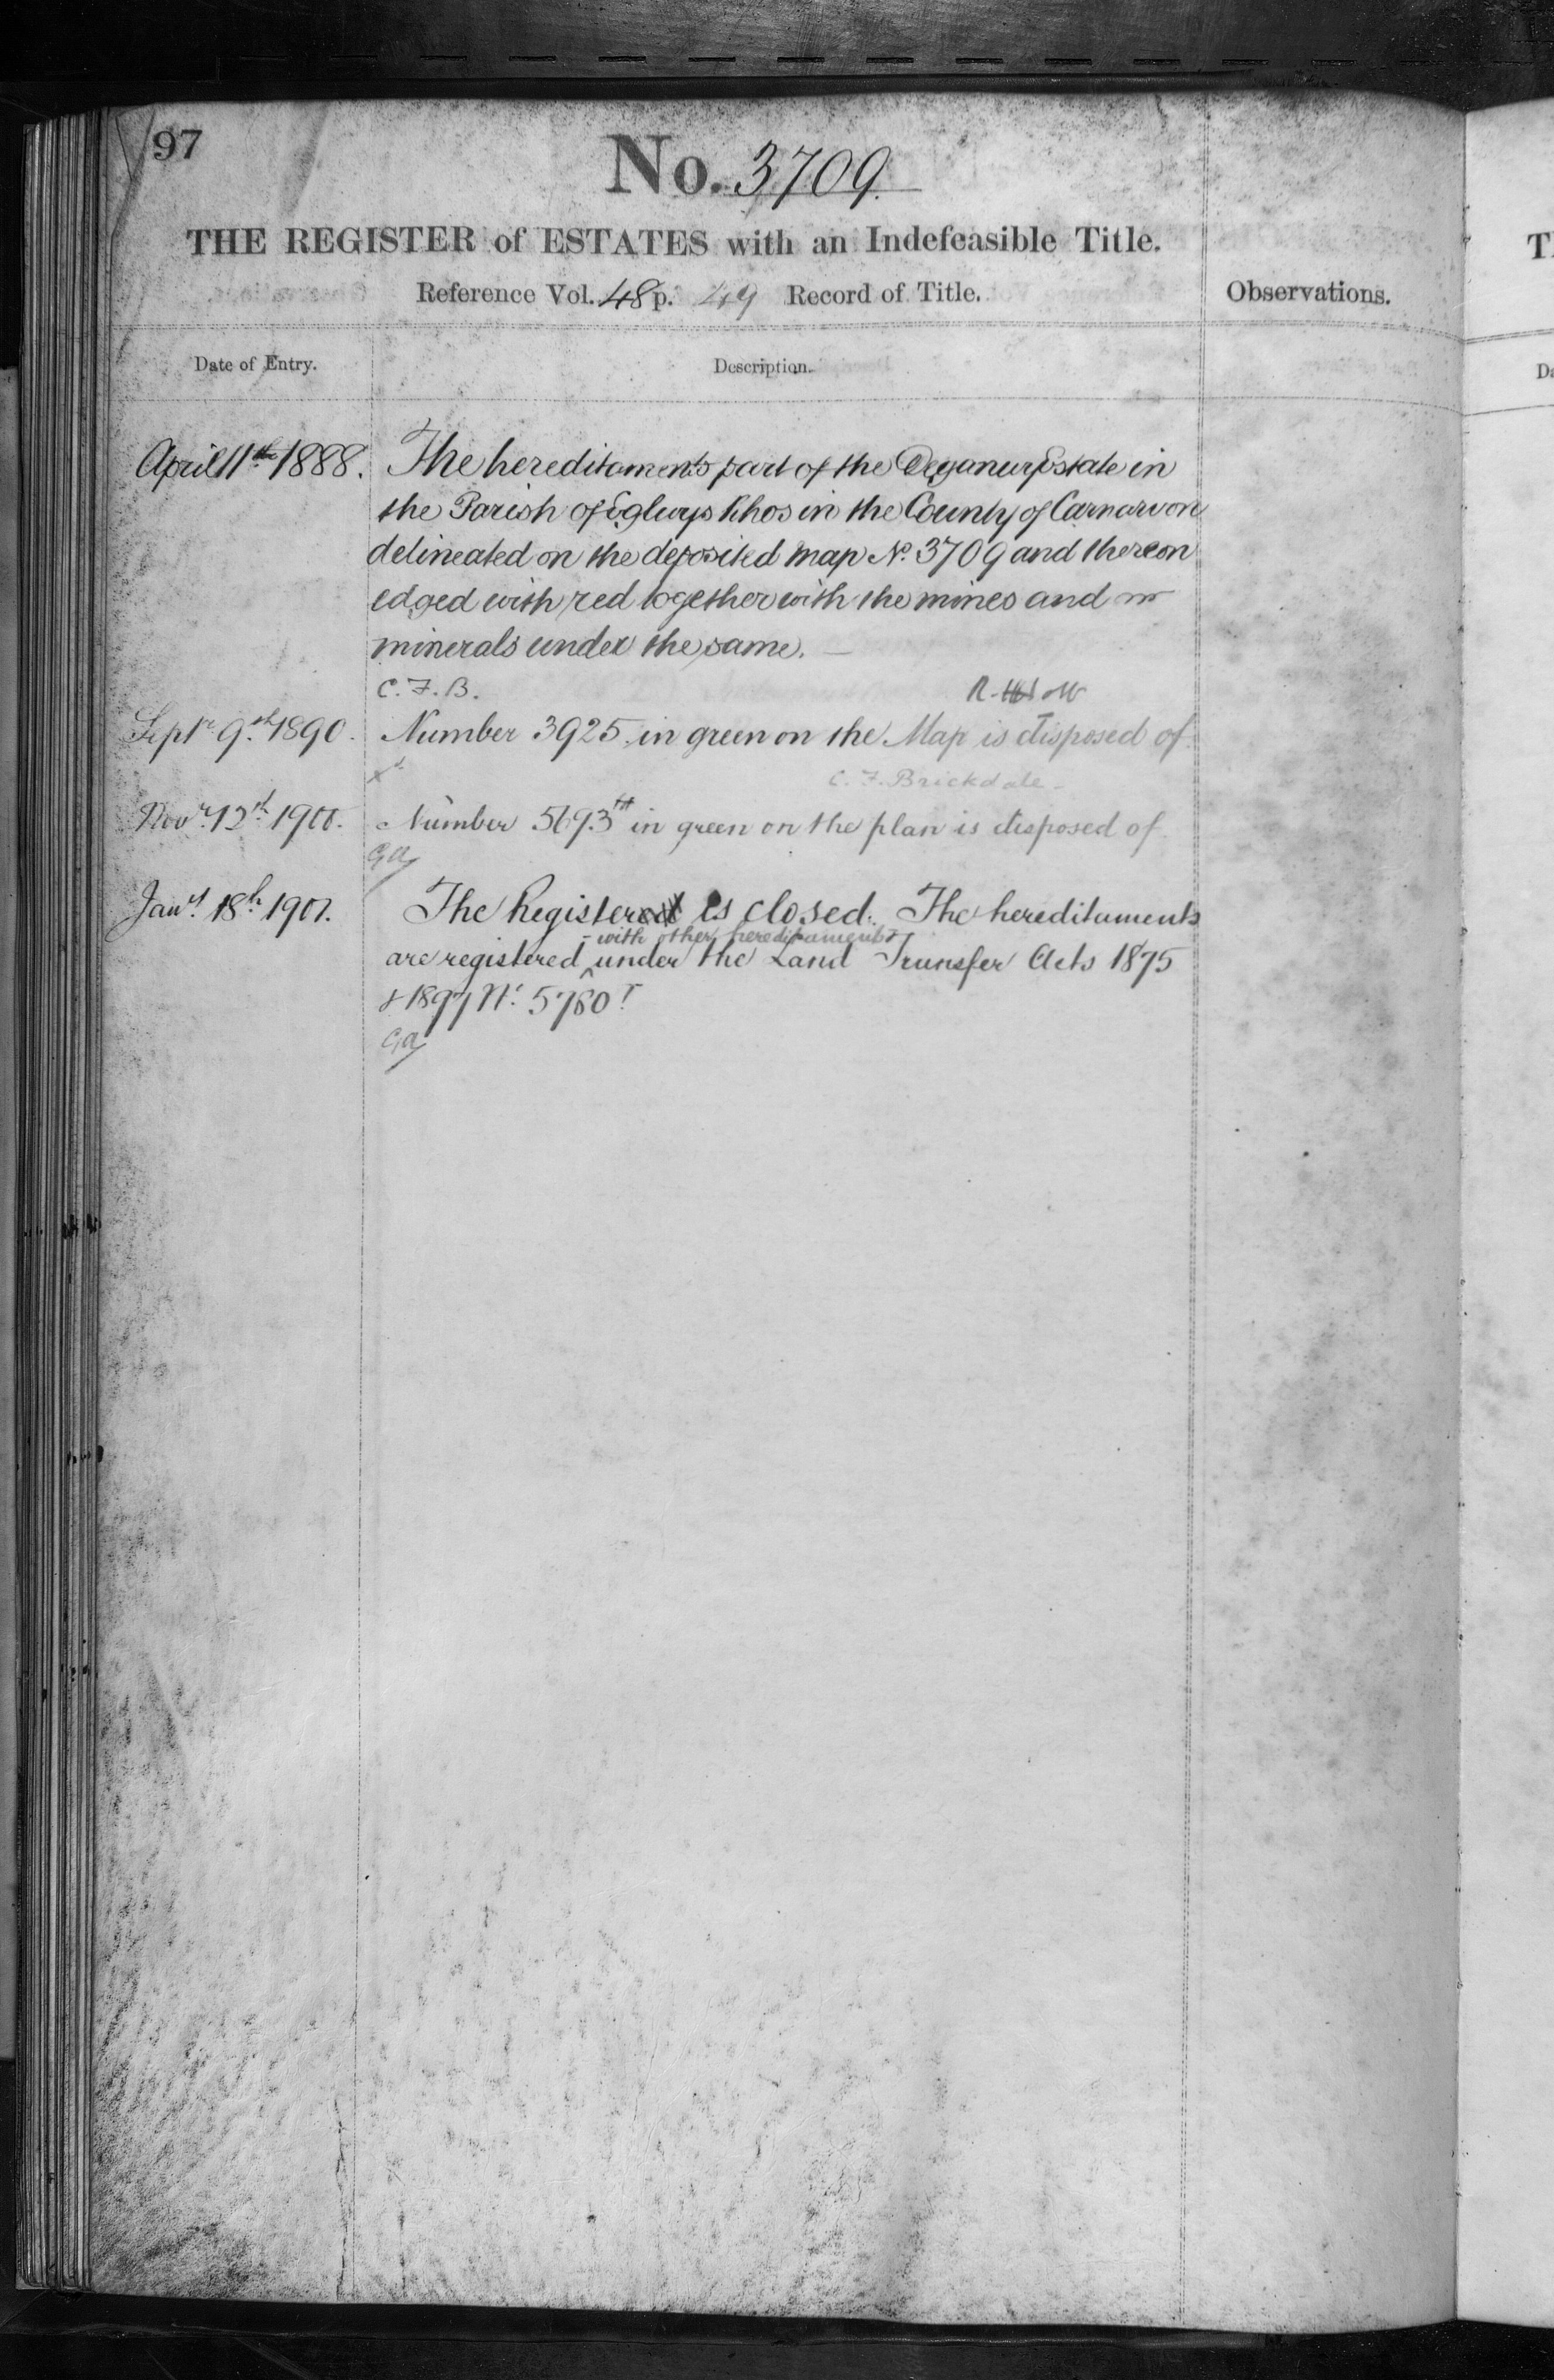 97
No. 3709.
THE REGISTER of ESTATES with an Indefeasible Title.
Reference Vol. 48 p. 49 Record of Title.
Observations.
Date of Entry.
Description.
April 11th 1888. The hereditaments part of the Deganwy Estate in
the Parish of Eglwys Rhos in the County of Carnarvon
delineated on the deposited map No. 3709 and thereon
edged with red together with the mines and
minerals under the same.
C.F.B.
Septr 9th 1890. Number 3925 in green on the Map is disposed of
C. F. Brickdale
Novr 12th 1900. Number 5693 in green on the plan is disposed of
Jany 18th 1901. The Register is closed. The hereditaments
with other hereditaments
are registered under the Land Transfer Acts 1875
& 1897 No. 5780